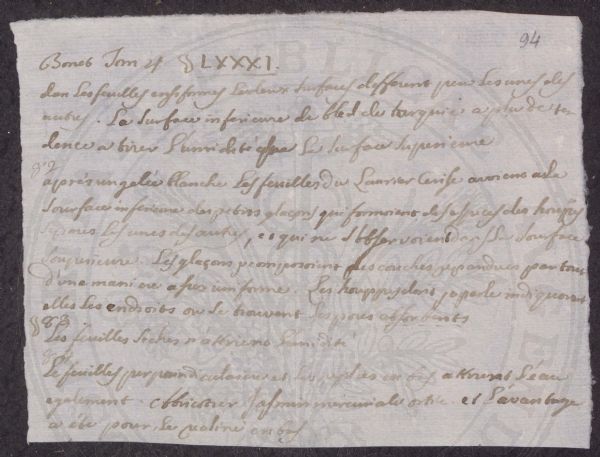 94
Bonet Tom 4 § LXXXI
dan les feuilles ensiformes les deux surfaces different peu les unes des
autres. La surface inferieure de bled de turquie a plus de ten
dence a tirer l'umidité que la surface superieure
82
après un gelée blanche les feuilles du Laurier Cerise avoient a la
sourface inferieure des petits glaçons qui formoient des especes des houppes
separés les unes des autres, et qui ne s'observoient dans la sourface
superieure. Les glaçons composoient des couches repandues par tout
d'une maniere assez uniforme. Les houppes dont je parle indiqueroient
elles les endroits ou se trouvent les pores absorbants
§ 83
Les feuilles seches n'attirent l'umidité
Le feuilles perpendiculaires et les attirent l'eau
egalement. Jasmin mercuriale ortie. et l'avantage
a été pour le